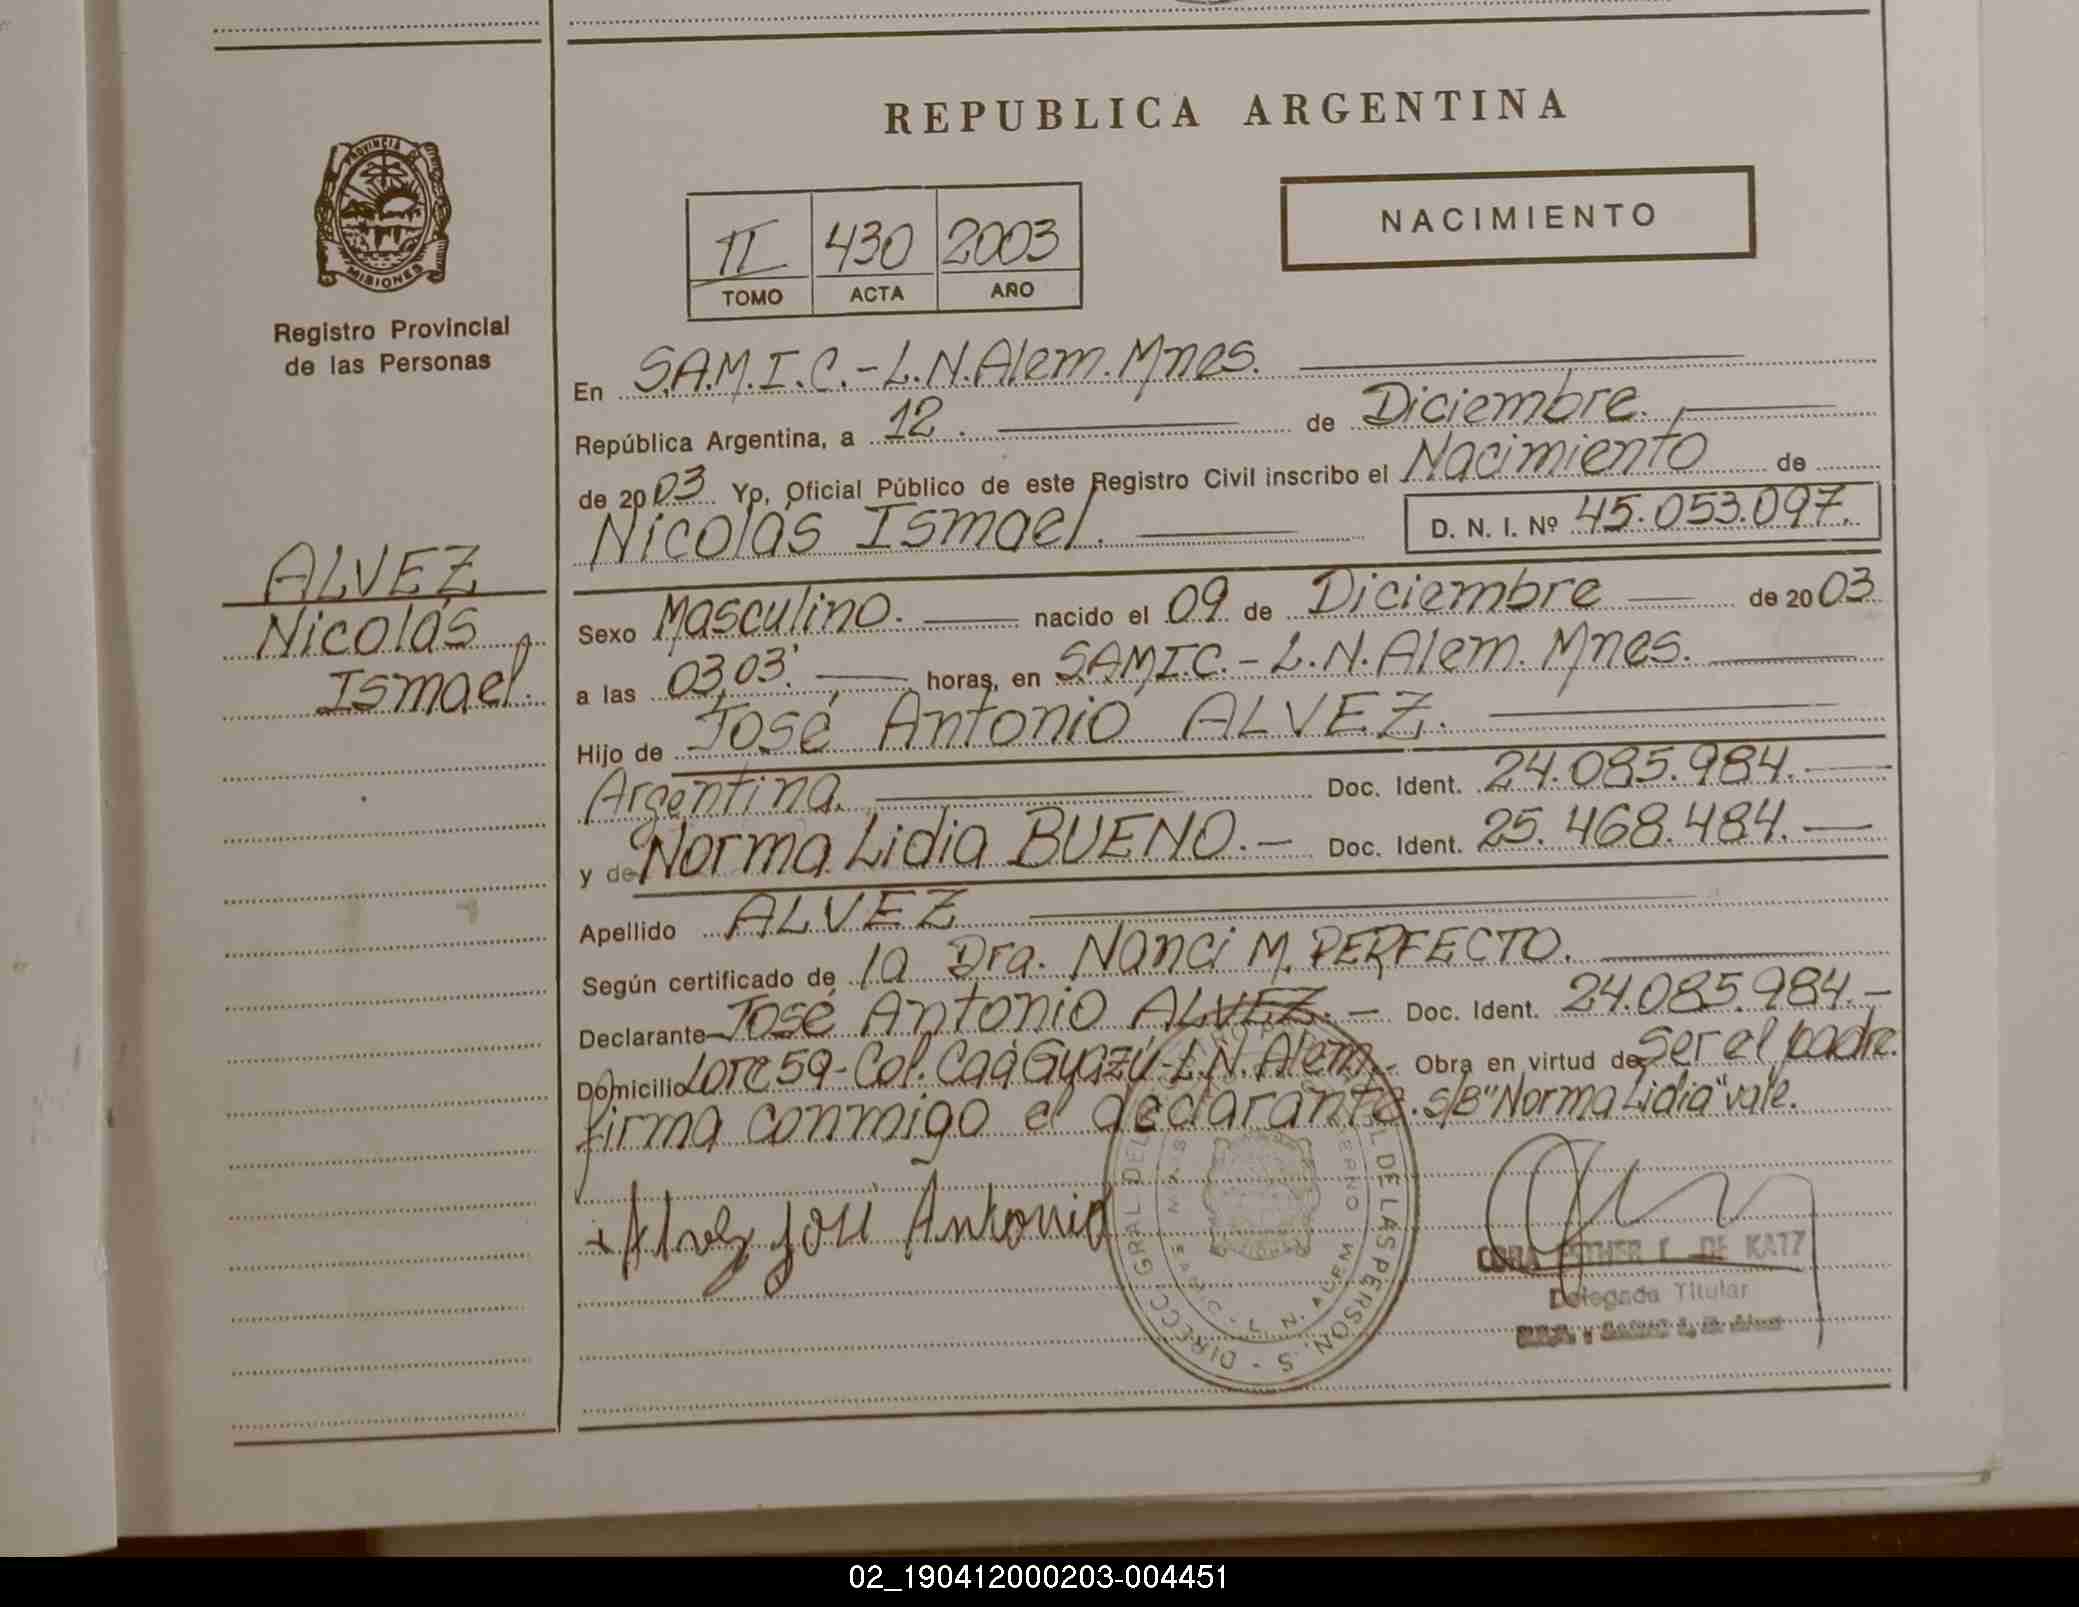 REPUBLICA ARGENTINA
PROVINCIA DE
MISIONES
Registro Provincial
de las Personas
II 430 2003
TOMO ACTA AÑO
NACIMIENTO
En S.A.M.I.C.-L.N.Alem.Mnes.
República Argentina, a 12. de Diciembre.
de 2003 Yo, Oficial Público de este Registro Civil inscribo el Nacimiento de
Nicolás Ismael. D. N. I. Nº 45.053.097.
ALVEZ
Nicolás
Ismael.
Sexo Masculino. nacido el 09 de Diciembre de 2003
a las 03,03'. horas, en S.A.M.I.C.-L.N.Alem. Mnes.
Hijo de José Antonio ALVEZ.
Argentina. Doc. Ident. 24.085.984.
y de Norma Lidia BUENO.- Doc. Ident. 25.468.484.
Apellido ALVEZ
Según certificado de la Dra. Nanci M. PERFECTO.
Declarante José Antonio ALVEZ.- Doc. Ident. 24.085.984.-
Domicilio Lote 59-Col. Caá Guazú-L.N.Alem.- Obra en virtud de ser el padre.
firma conmigo el declarante. s/B "Norma Lidia" vale.
Alvez José Antonio
DIRECC GRAL DEL DE LAS PERSON.S
L. N. ALEM
ESTHER DE KATZ
Delegada Titular
02_190412000203-004451